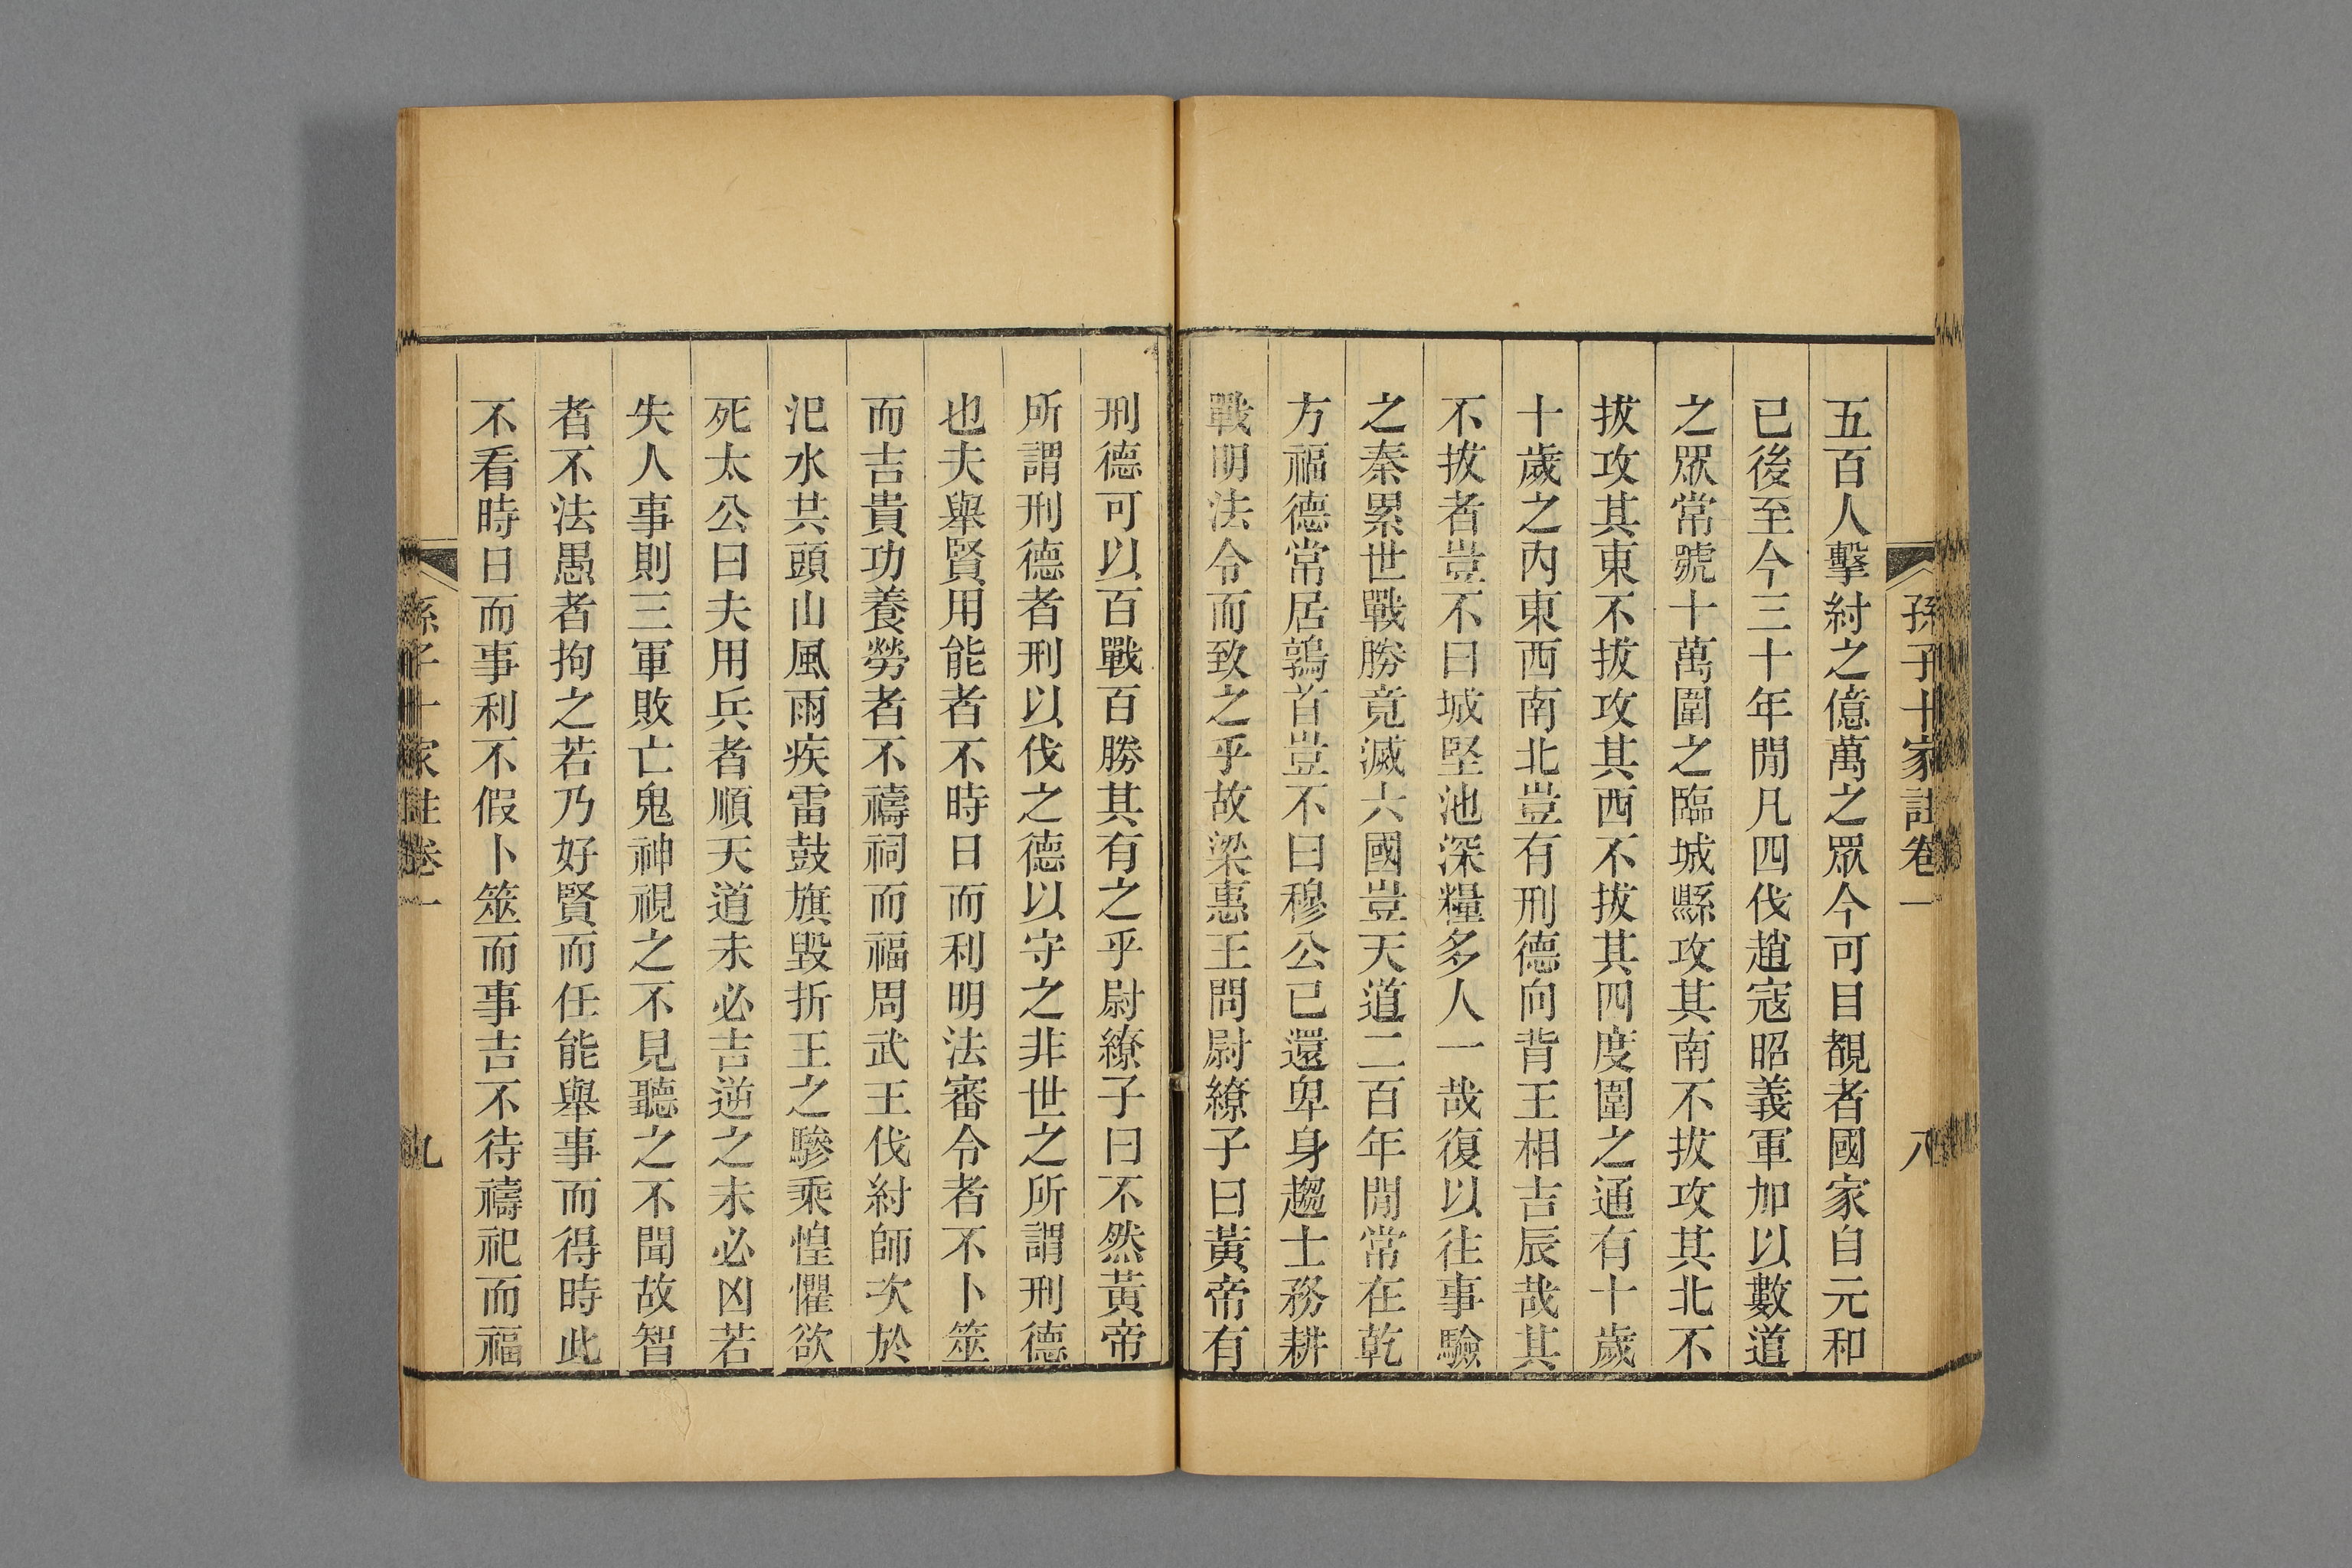 孫子十家註卷一 八
五百人擊紂之億萬之眾今可目覩者國家自元和
已後至今三十年閒凡四伐趙寇昭義軍加以數道
之眾常號十萬圍之臨城縣攻其南不拔攻其北不
拔攻其東不拔攻其西不拔其四度圍之通有十歲
十歲之內東西南北豈有刑德向背王相吉辰哉其
不拔者豈不曰城堅池深糧多人一哉復以往事驗
之秦累世戰勝竟滅六國豈天道二百年閒常在乾
方福德常居鶉首豈不曰穆公已還卑身趨士務耕
戰明法令而致之乎故梁惠王問尉繚子曰黃帝有
刑德可以百戰百勝其有之乎尉繚子曰不然黃帝
所謂刑德者刑以伐之德以守之非世之所謂刑德
也夫舉賢用能者不時日而利明法審令者不卜筮
而吉貴功養勞者不禱祠而福周武王伐紂師次於
汜水共頭山風雨疾雷鼓旗毀折王之驂乘惶懼欲
死太公曰夫用兵者順天道未必吉逆之未必凶若
失人事則三軍敗亡鬼神視之不見聽之不聞故智
者不法愚者拘之若乃好賢而任能舉事而得時此
不看時日而事利不假卜筮而事吉不待禱祀而福
孫子十家註卷一 九